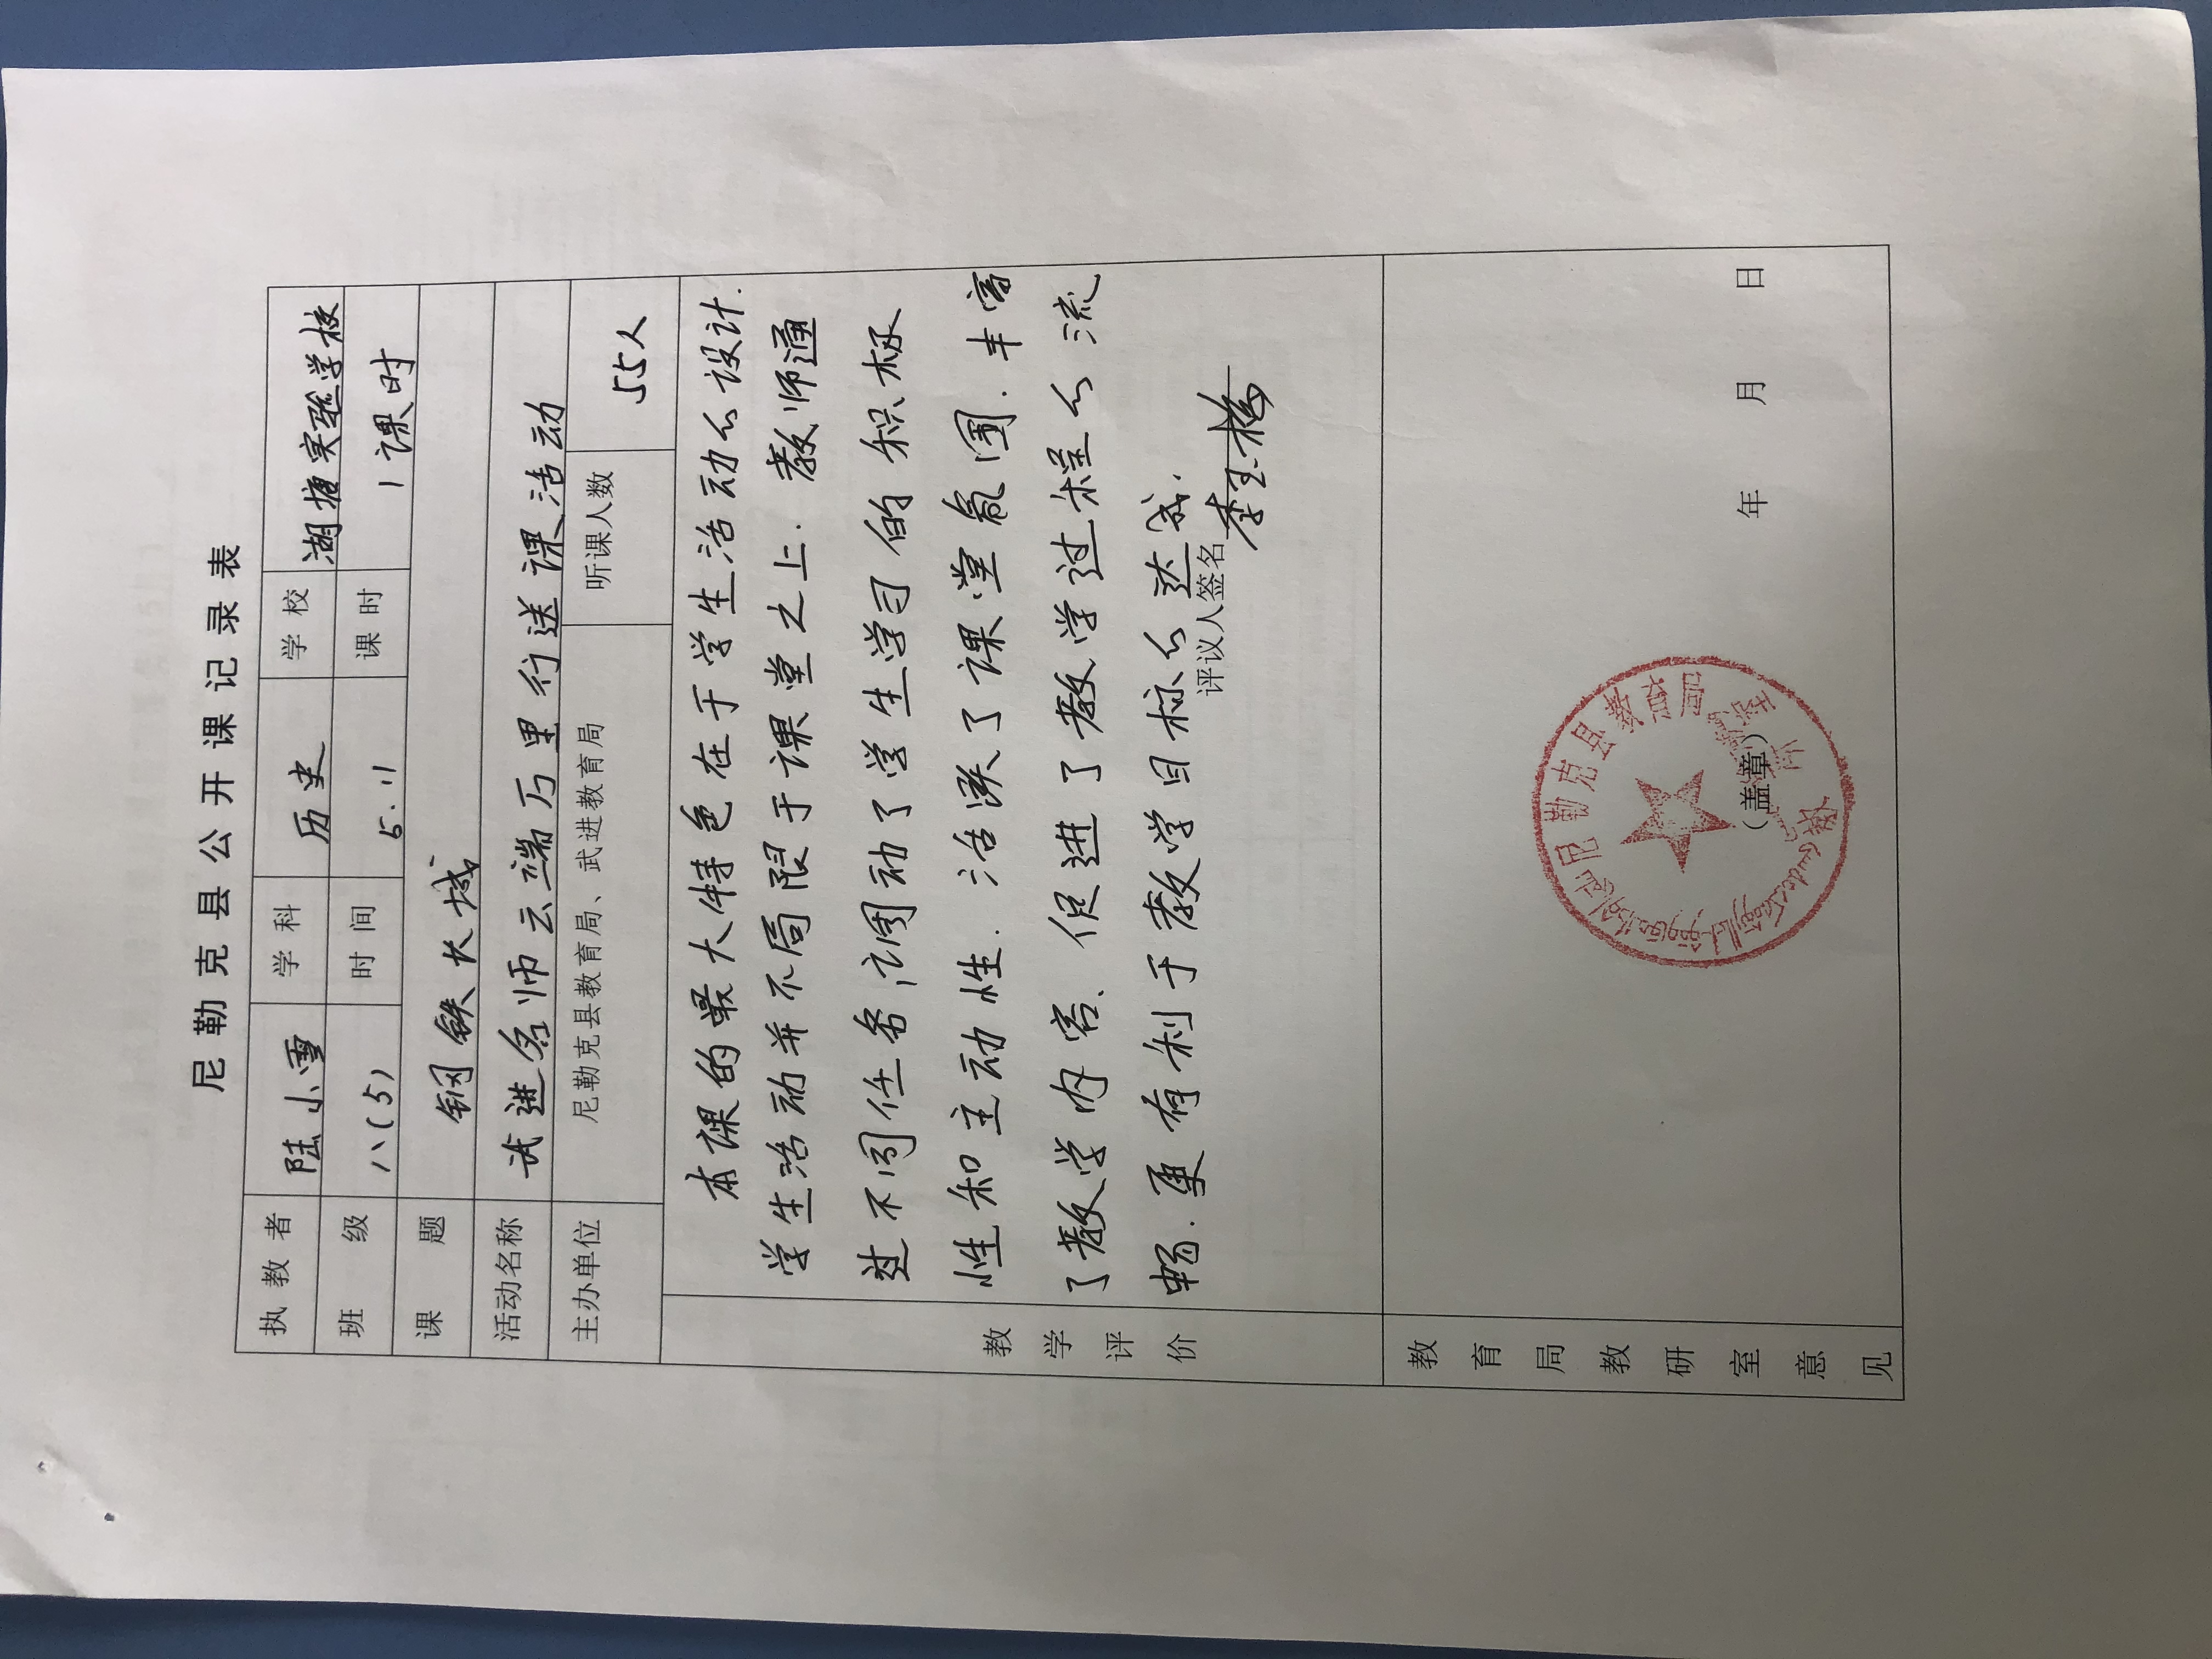 尼勒克县公开课记录表
执教者 陆小雪 学科 历史 学校 湖塘实验学校
班级 八(5) 时间 5.11 课时 1课时
课题 钢铁长城
活动名称 武进名师云端万里行送课活动
主办单位 尼勒克县教育局、武进教育局 听课人数 55人
教学评价
本课的最大特色在于学生活动的设计.
学生活动并不局限于课堂之上.教师通
过不同任务调动了学生学习的积极
性和主动性.活跃了课堂氛围.丰富
了教学内容、促进了教学过程的流
畅.更有利于教学目标的达成.
评议人签名
教育局教研室意见
尼勒克县教育局
(盖章)
年 月 日